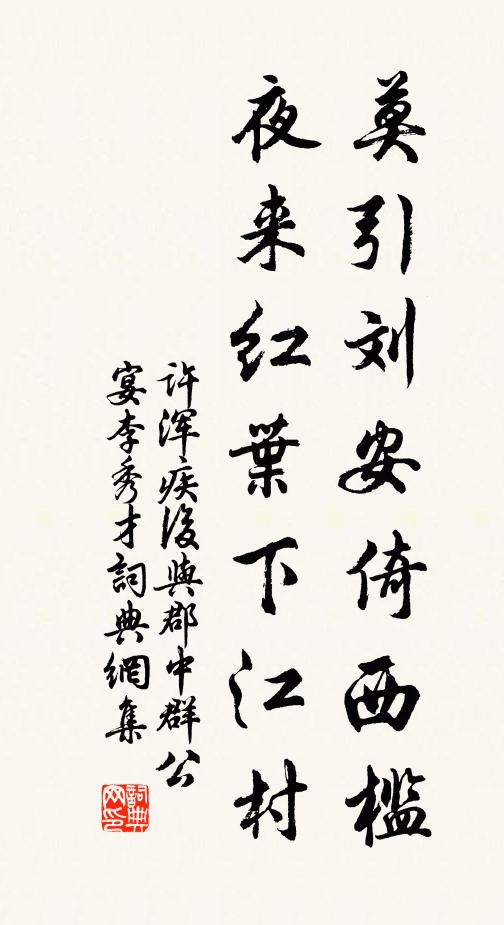 莫引刘安倚西槛
夜来红葉下江村
许浑疾後與郡中群公
宴李秀才詞典網集
詞典网印